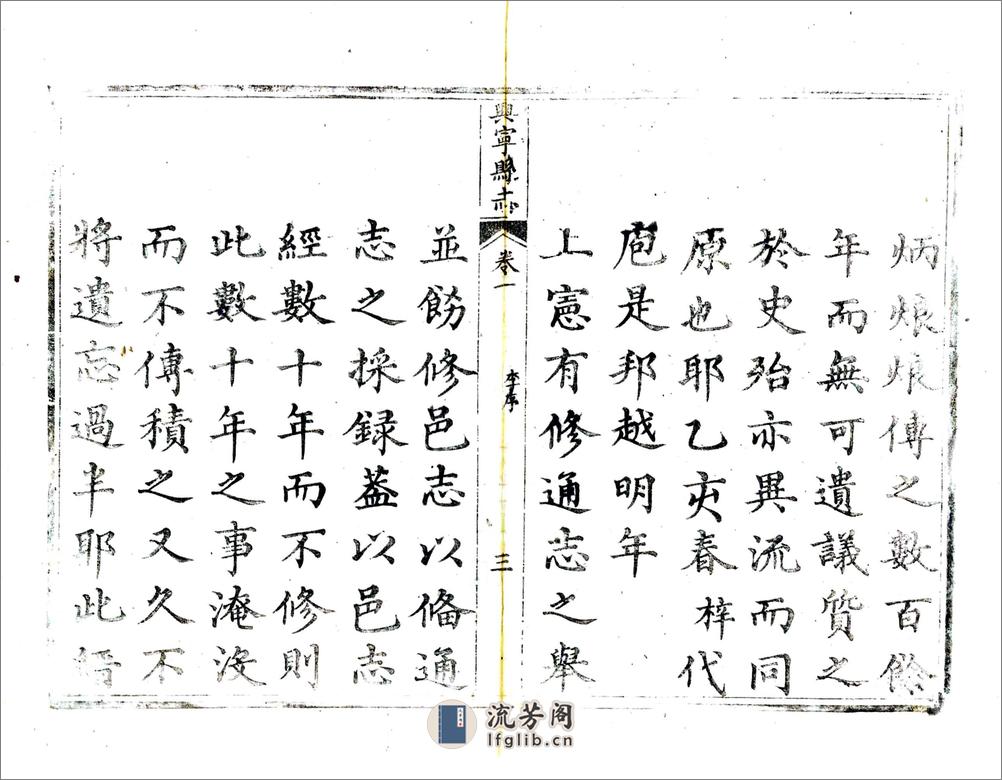 炳烺烺傳之數百餘
年而無可遺議質之
於史殆亦異流而同
原也耶乙亥春梓代
庖是邦越明年
上憲有修通志之舉
興寧縣志
卷一
李序
三
並飭修邑志以俻通
志之採録葢以邑志
經數十年而不修則
此數十年之事淹沒
而不傳積之又久不
將遺忘過半耶此
流芳阁
lfglib.cn